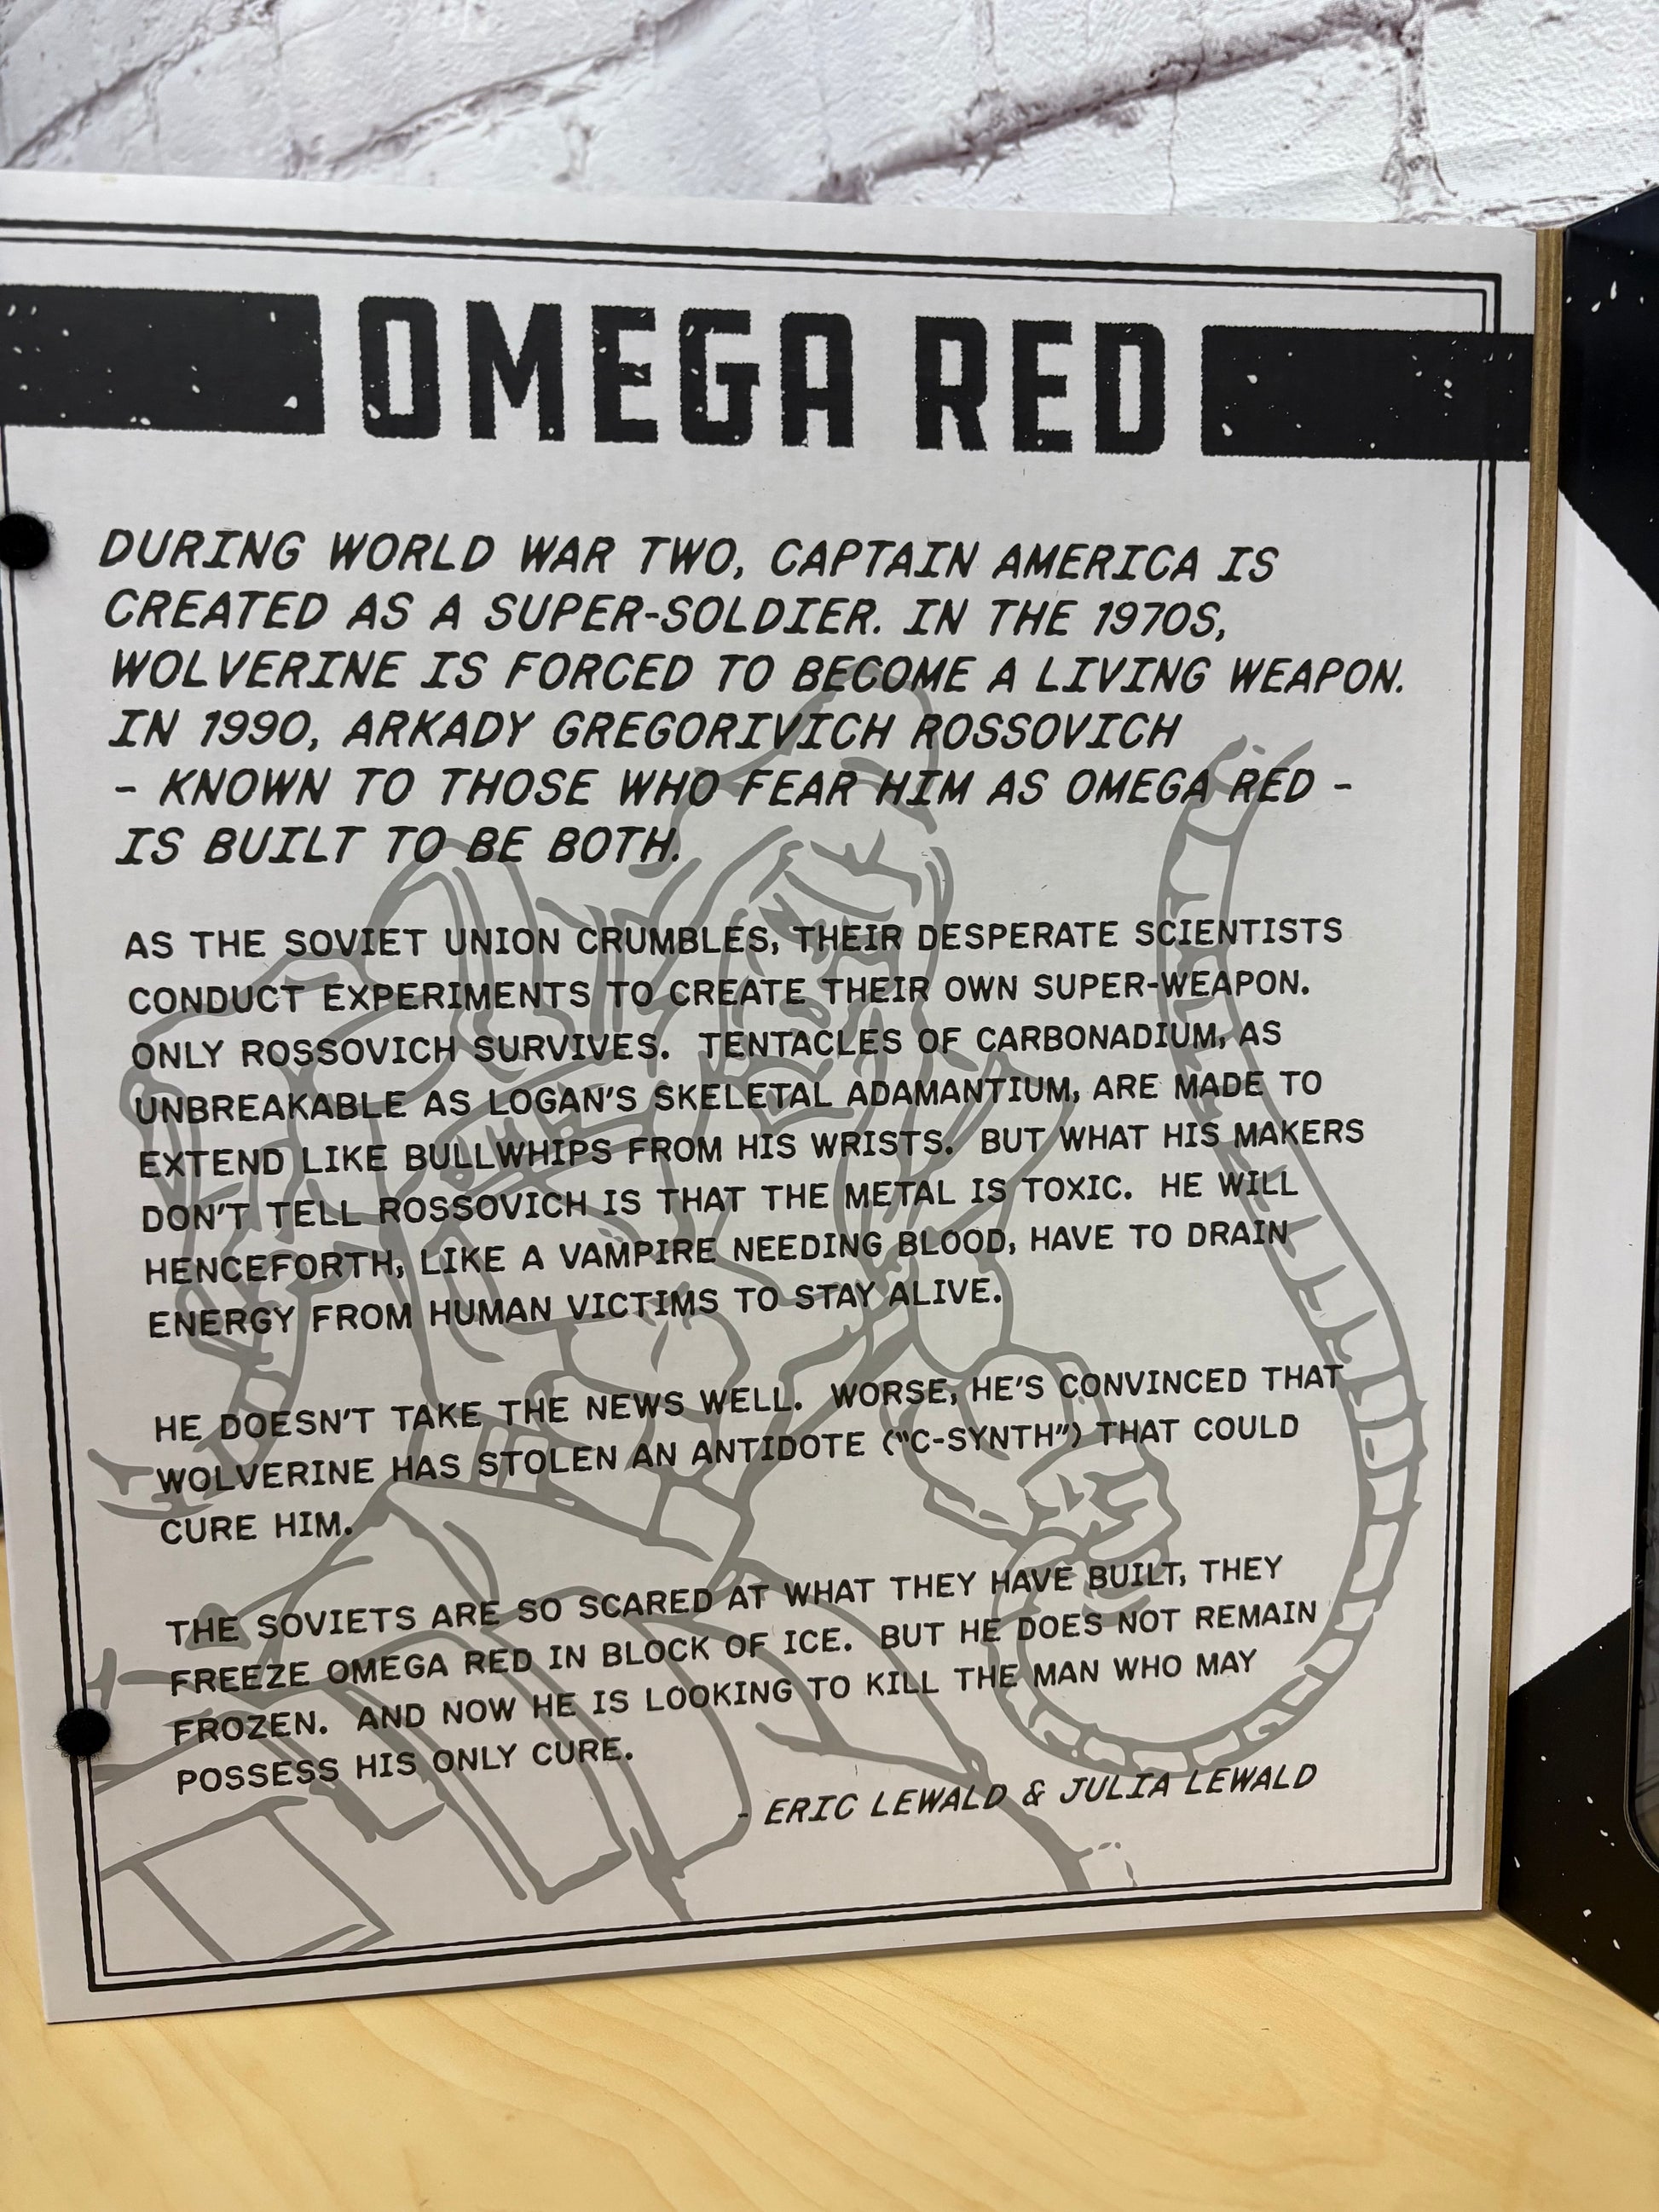 OMEGA RED
DURING WORLD WAR TWO, CAPTAIN AMERICA IS
CREATED AS A SUPER-SOLDIER. IN THE 1970S,
WOLVERINE IS FORCED TO BECOME A LIVING WEAPON.
IN 1990, ARKADY GREGORIVICH ROSSOVICH
– KNOWN TO THOSE WHO FEAR HIM AS OMEGA RED –
IS BUILT TO BE BOTH.
AS THE SOVIET UNION CRUMBLES, THEIR DESPERATE SCIENTISTS
CONDUCT EXPERIMENTS TO CREATE THEIR OWN SUPER-WEAPON.
ONLY ROSSOVICH SURVIVES. TENTACLES OF CARBONADIUM, AS
UNBREAKABLE AS LOGAN'S SKELETAL ADAMANTIUM, ARE MADE TO
EXTEND LIKE BULLWHIPS FROM HIS WRISTS. BUT WHAT HIS MAKERS
DON'T TELL ROSSOVICH IS THAT THE METAL IS TOXIC. HE WILL
HENCEFORTH, LIKE A VAMPIRE NEEDING BLOOD, HAVE TO DRAIN
ENERGY FROM HUMAN VICTIMS TO STAY ALIVE.
HE DOESN'T TAKE THE NEWS WELL. WORSE, HE'S CONVINCED THAT
WOLVERINE HAS STOLEN AN ANTIDOTE ("C-SYNTH") THAT COULD
CURE HIM.
THE SOVIETS ARE SO SCARED AT WHAT THEY HAVE BUILT, THEY
FREEZE OMEGA RED IN BLOCK OF ICE. BUT HE DOES NOT REMAIN
FROZEN. AND NOW HE IS LOOKING TO KILL THE MAN WHO MAY
POSSESS HIS ONLY CURE.
- ERIC LEWALD & JULIA LEWALD